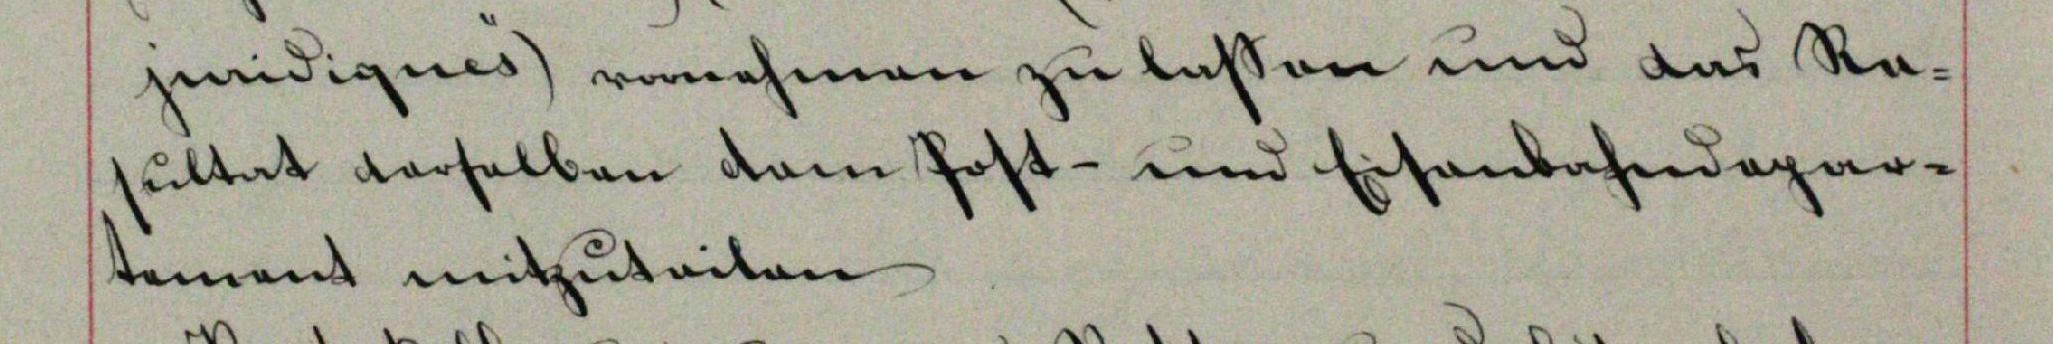 juridiques") vornehmen zu lassen und das Re-
sultat derselben dem Post- und Eisenbahndepar-
tement mitzuteilen